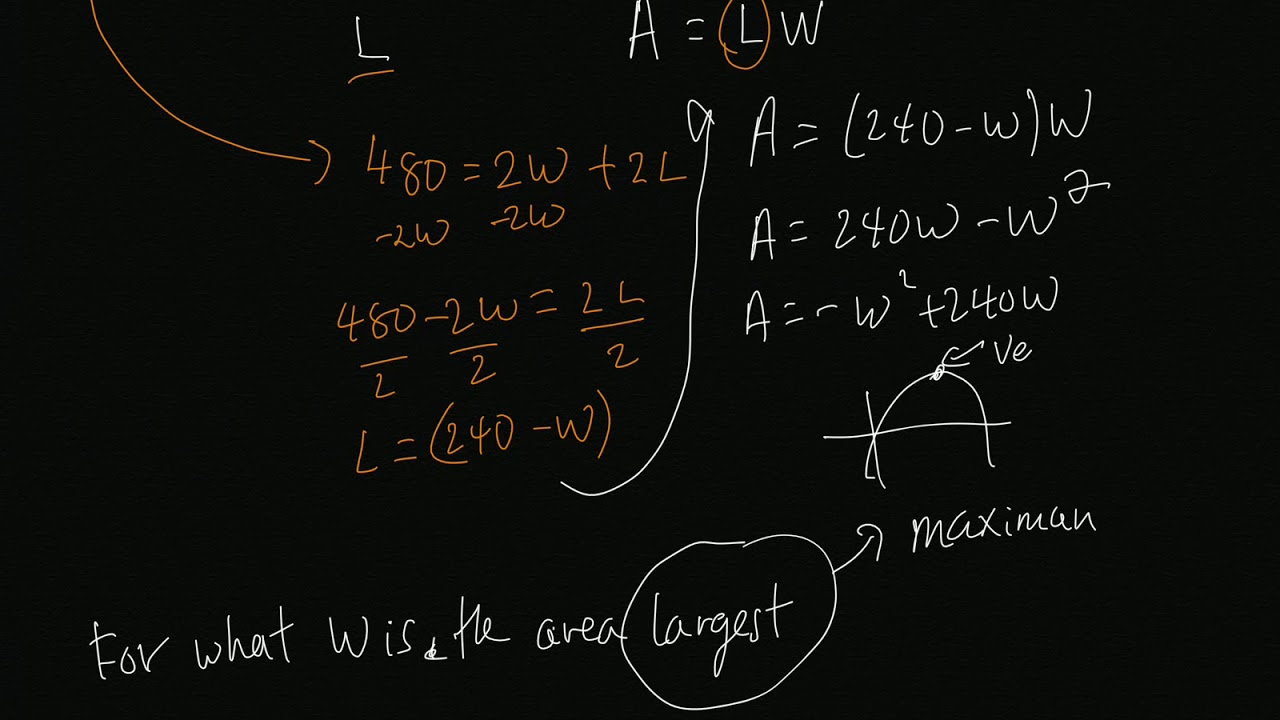 L
A = LW
480 = 2W + 2L
-2W -2W
480 - 2W = 2L
2 2 2
L = (240 - W)
A = (240 - W)W
A = 240W - W²
A = -W² + 240W
Ve
maximan
For what W is the area largest